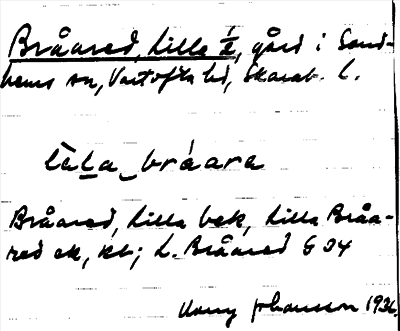 Bråared, Lilla 1/2, gård i Sand-
hems sn, Vartofta hd, Skarab. l.
låla bråara
Bråared, Lilla bek, Lilla Bråa-
red ek, kb; L. Bråared G 04
Johansson 1936.